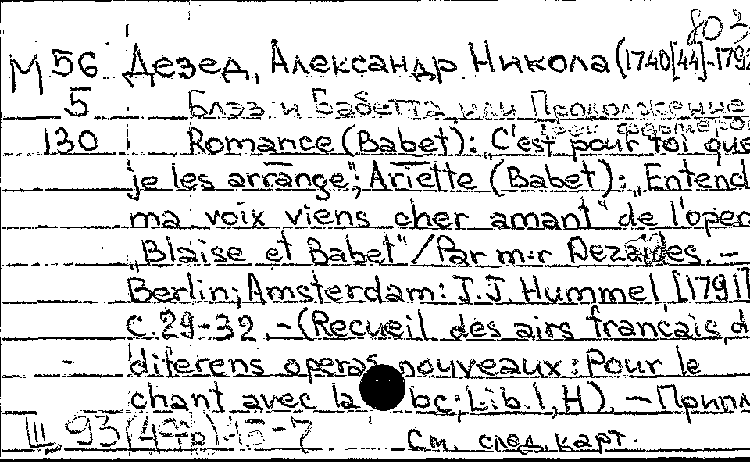 803
М 56 Дезед, Александр Никола (1740[44]-1792
5 Блэз и Бабетта, или Продолжение
трех фермеров
130 Romance (Babet): „C'est pour toi que
je les arrange"; Ariette (Babet): „Entend
ma voix viens cher amant" de l'oper
„Blaise et Babet" / Par m-r Dezaides. –
Berlin; Amsterdam: J.J. Hummel, [1791]
С. 29-32. – (Recueil des airs francais d
diferens operas nouveaux: Pour le
chant avec la bc; Lib. 1, H). – Припл
Ш 93 -15-7 См. след. карт.